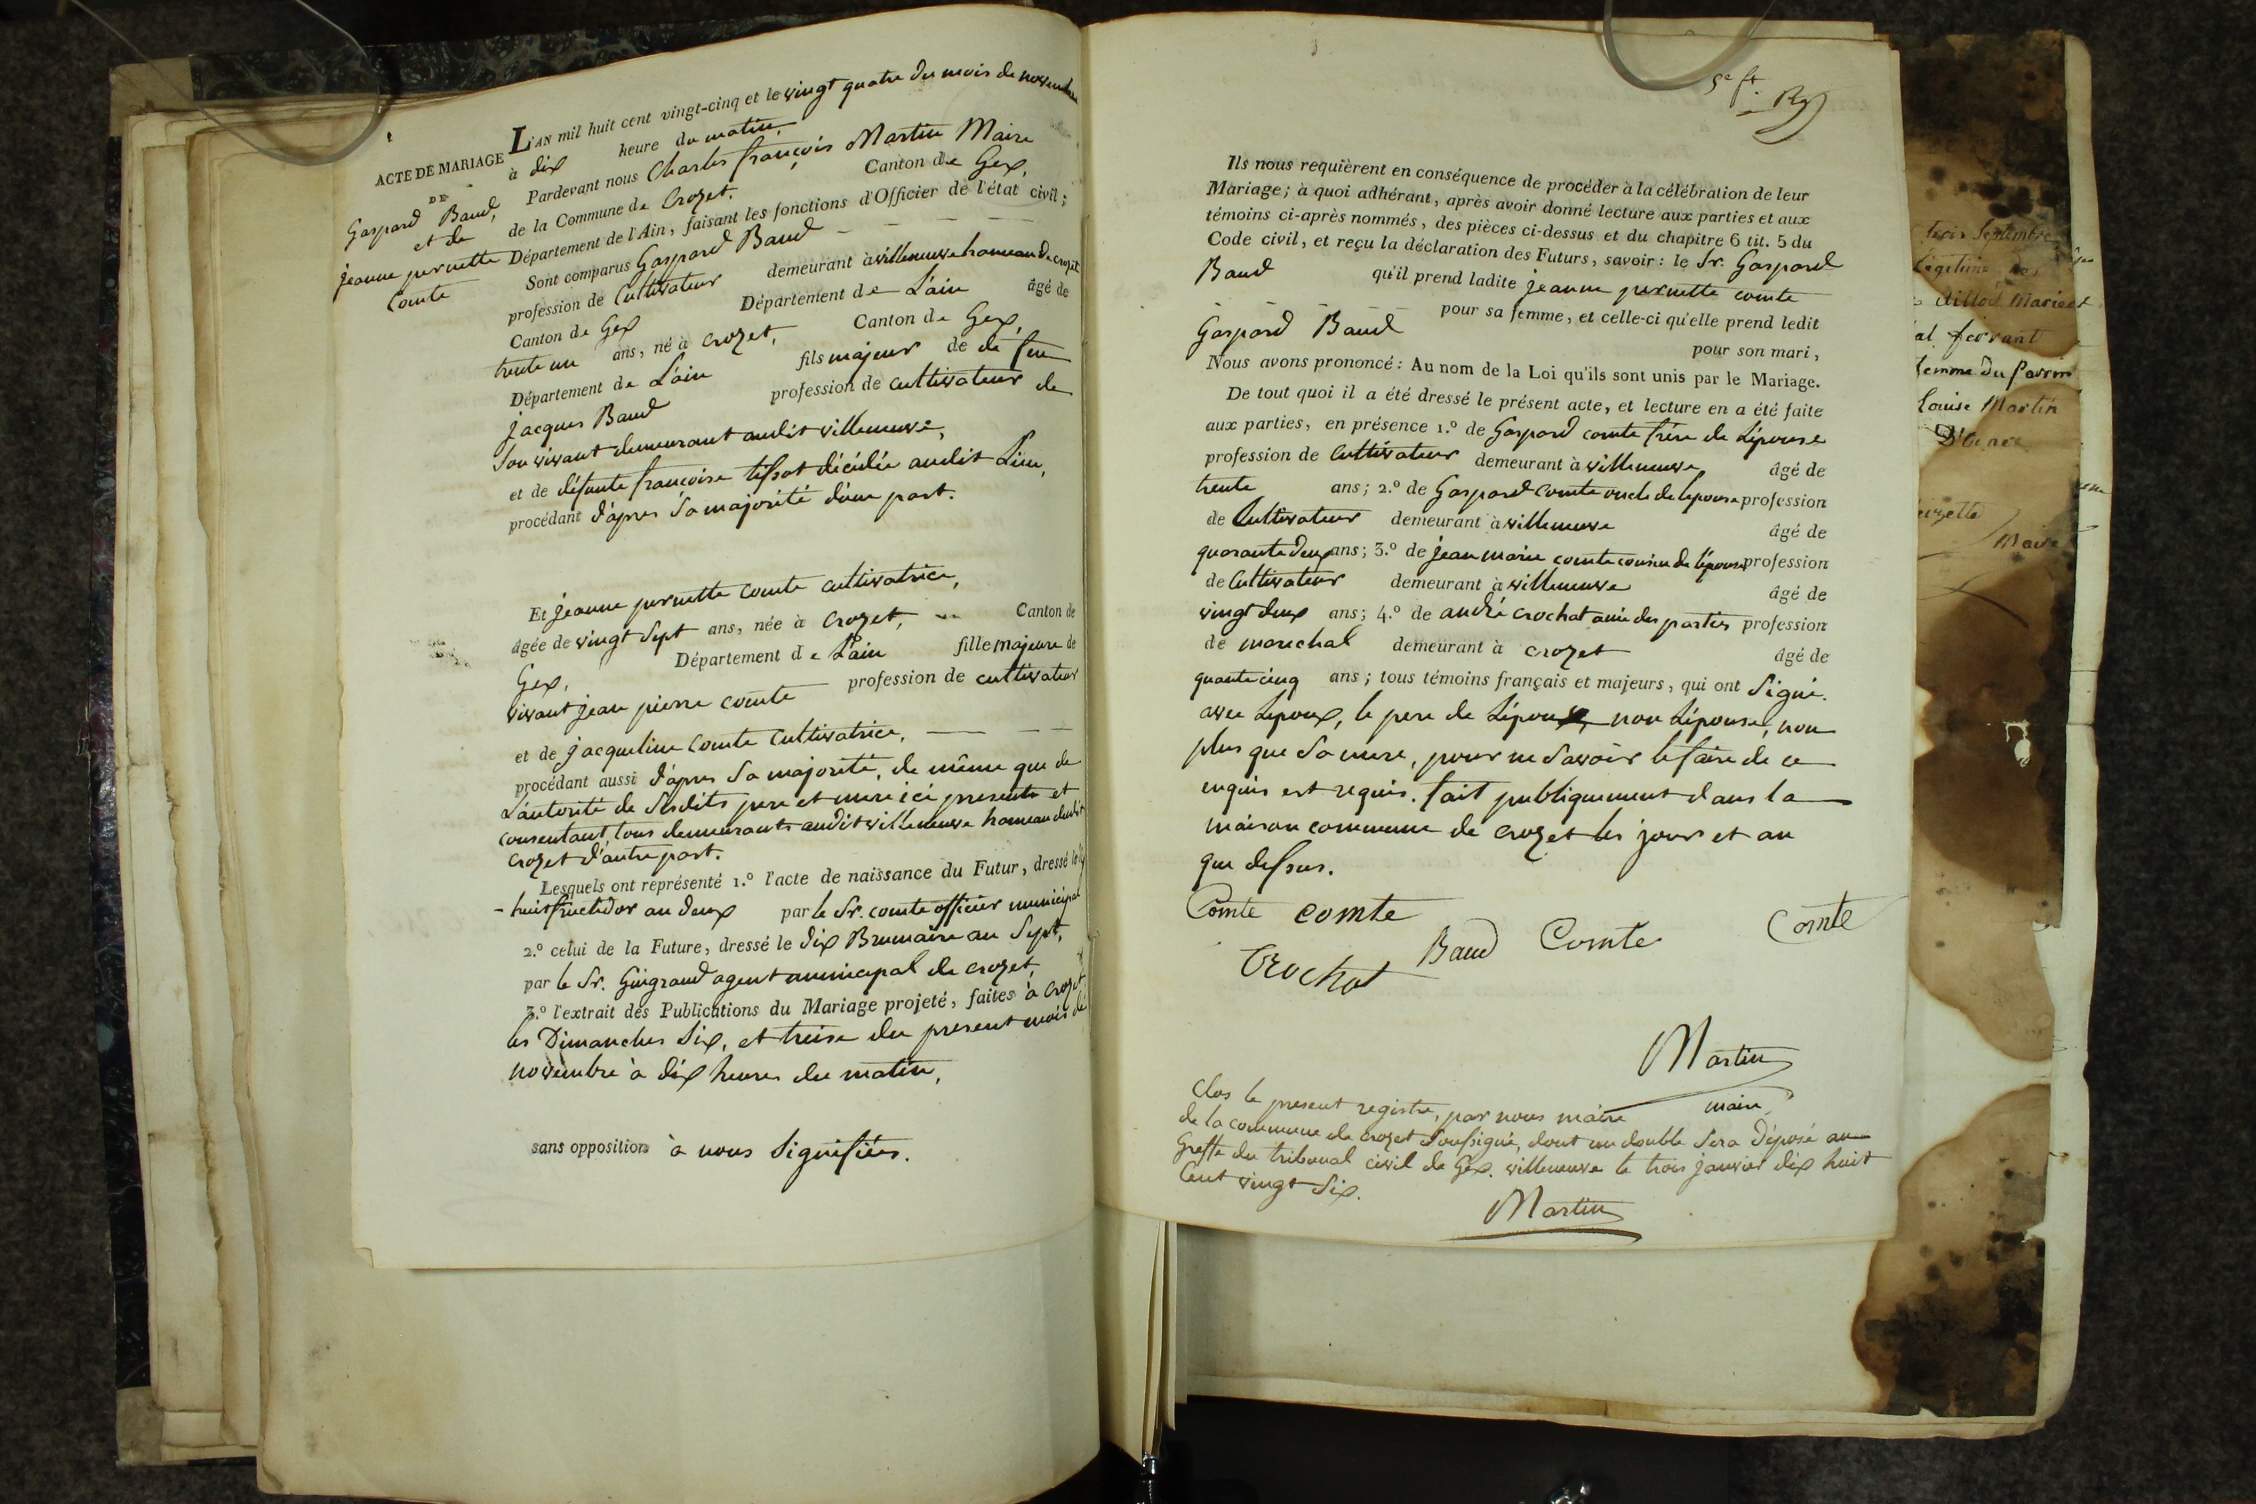 ACTE DE MARIAGE
DE
Gaspard Baud,
et de
jeanne pernette
Comte
L'AN mil huit cent vingt-cinq et le vingt quatre du mois de novembre
à dix heure du matin,
Pardevant nous Charles françois Martin Maire
de la Commune de Crozet. Canton de Gex,
Département de l'Ain, faisant les fonctions d'Officier de l'état civil;
Sont comparus Gaspard Baud
profession de Cultivateur demeurant à villeneuve hameau de crozet
Canton de Gex Département de L'ain âgé de
trente un ans, né à Crozet, Canton de Gex,
Département de L'ain fils majeur de de feu
jacques Baud profession de cultivateur de
Son vivant demeurant audit villeneuve,
et de défunte francoise tissot décédée audit Lieu,
procédant d'apres Sa majorité d'une part.
Et jeanne pernette comte cultivatrice,
âgée de vingt Sept ans, née à Crozet, Canton de
Gex, Département de L'ain fille majeure de
vivant jean pierre comte profession de cultivateur
et de jacqueline Comte Cultivatrice,
procédant aussi d'apres Sa majorité, de même que de
L'autorité de Sesdits pere et mere ici presents et
consentant, tous demeurants audit villeneuve hameau dudit
Crozet d'autre part.
Lesquels ont représenté 1.º l'acte de naissance du Futur, dressé le
huit fructidor an deux par le Sr. comte officier municipal
2.º celui de la Future, dressé le dix Brumaire an Sept,
par le Sr. Gingrand agent municipal de crozet,
3.º l'extrait des Publications du Mariage projeté, faites à Crozet
les Dimanches Six, et treise du present mois de
novembre à dix heures du matin,
sans opposition à nous Signifiées.
5e ft.
Ils nous requièrent en conséquence de procéder à la célébration de leur
Mariage; à quoi adhérant, après avoir donné lecture aux parties et aux
témoins ci-après nommés, des pièces ci-dessus et du chapitre 6 tit. 5 du
Code civil, et reçu la déclaration des Futurs, savoir: le Sr. Gaspard
Baud qu'il prend ladite jeanne pernette comte
pour sa femme, et celle-ci qu'elle prend ledit
Gaspard Baud pour son mari,
Nous avons prononcé: Au nom de la Loi qu'ils sont unis par le Mariage.
De tout quoi il a été dressé le présent acte, et lecture en a été faite
aux parties, en présence 1.º de Gaspard comte frère de L'épouse
profession de Cultivateur demeurant à villeneuve âgé de
trente ans; 2.º de Gaspard Comte oncle de lepouse profession
de Cultivateur demeurant à villeneuve âgé de
quarante deux ans; 3.º de jean marie comte cousin de l'épouse profession
de Cultivateur demeurant à villeneuve âgé de
vingt deux ans; 4.º de andré crochat ami des parties profession
de marechal demeurant à crozet âgé de
quante cinq ans; tous témoins français et majeurs, qui ont Signé.
avec L'époux, le pere de L'épouse, non L'épouse, non
plus que Sa mere, pour ne Savoir le faire de ce
enquis et requis. fait publiquement dans la
maison commune de crozet les jour et an
que dessus.
Comte comte Baud Comte Comte
Crochat
Martin
maire
Clos le present registre, par nous maire
de la commune de crozet Soussigné, dont un double Sera déposé au
Greffe du tribunal civil de Gex. villeneuve le trois janvier dix huit
Cent vingt Six.
Martin
Septembre
Légitime des
ferrant
femme du
Louise Martin
Maire